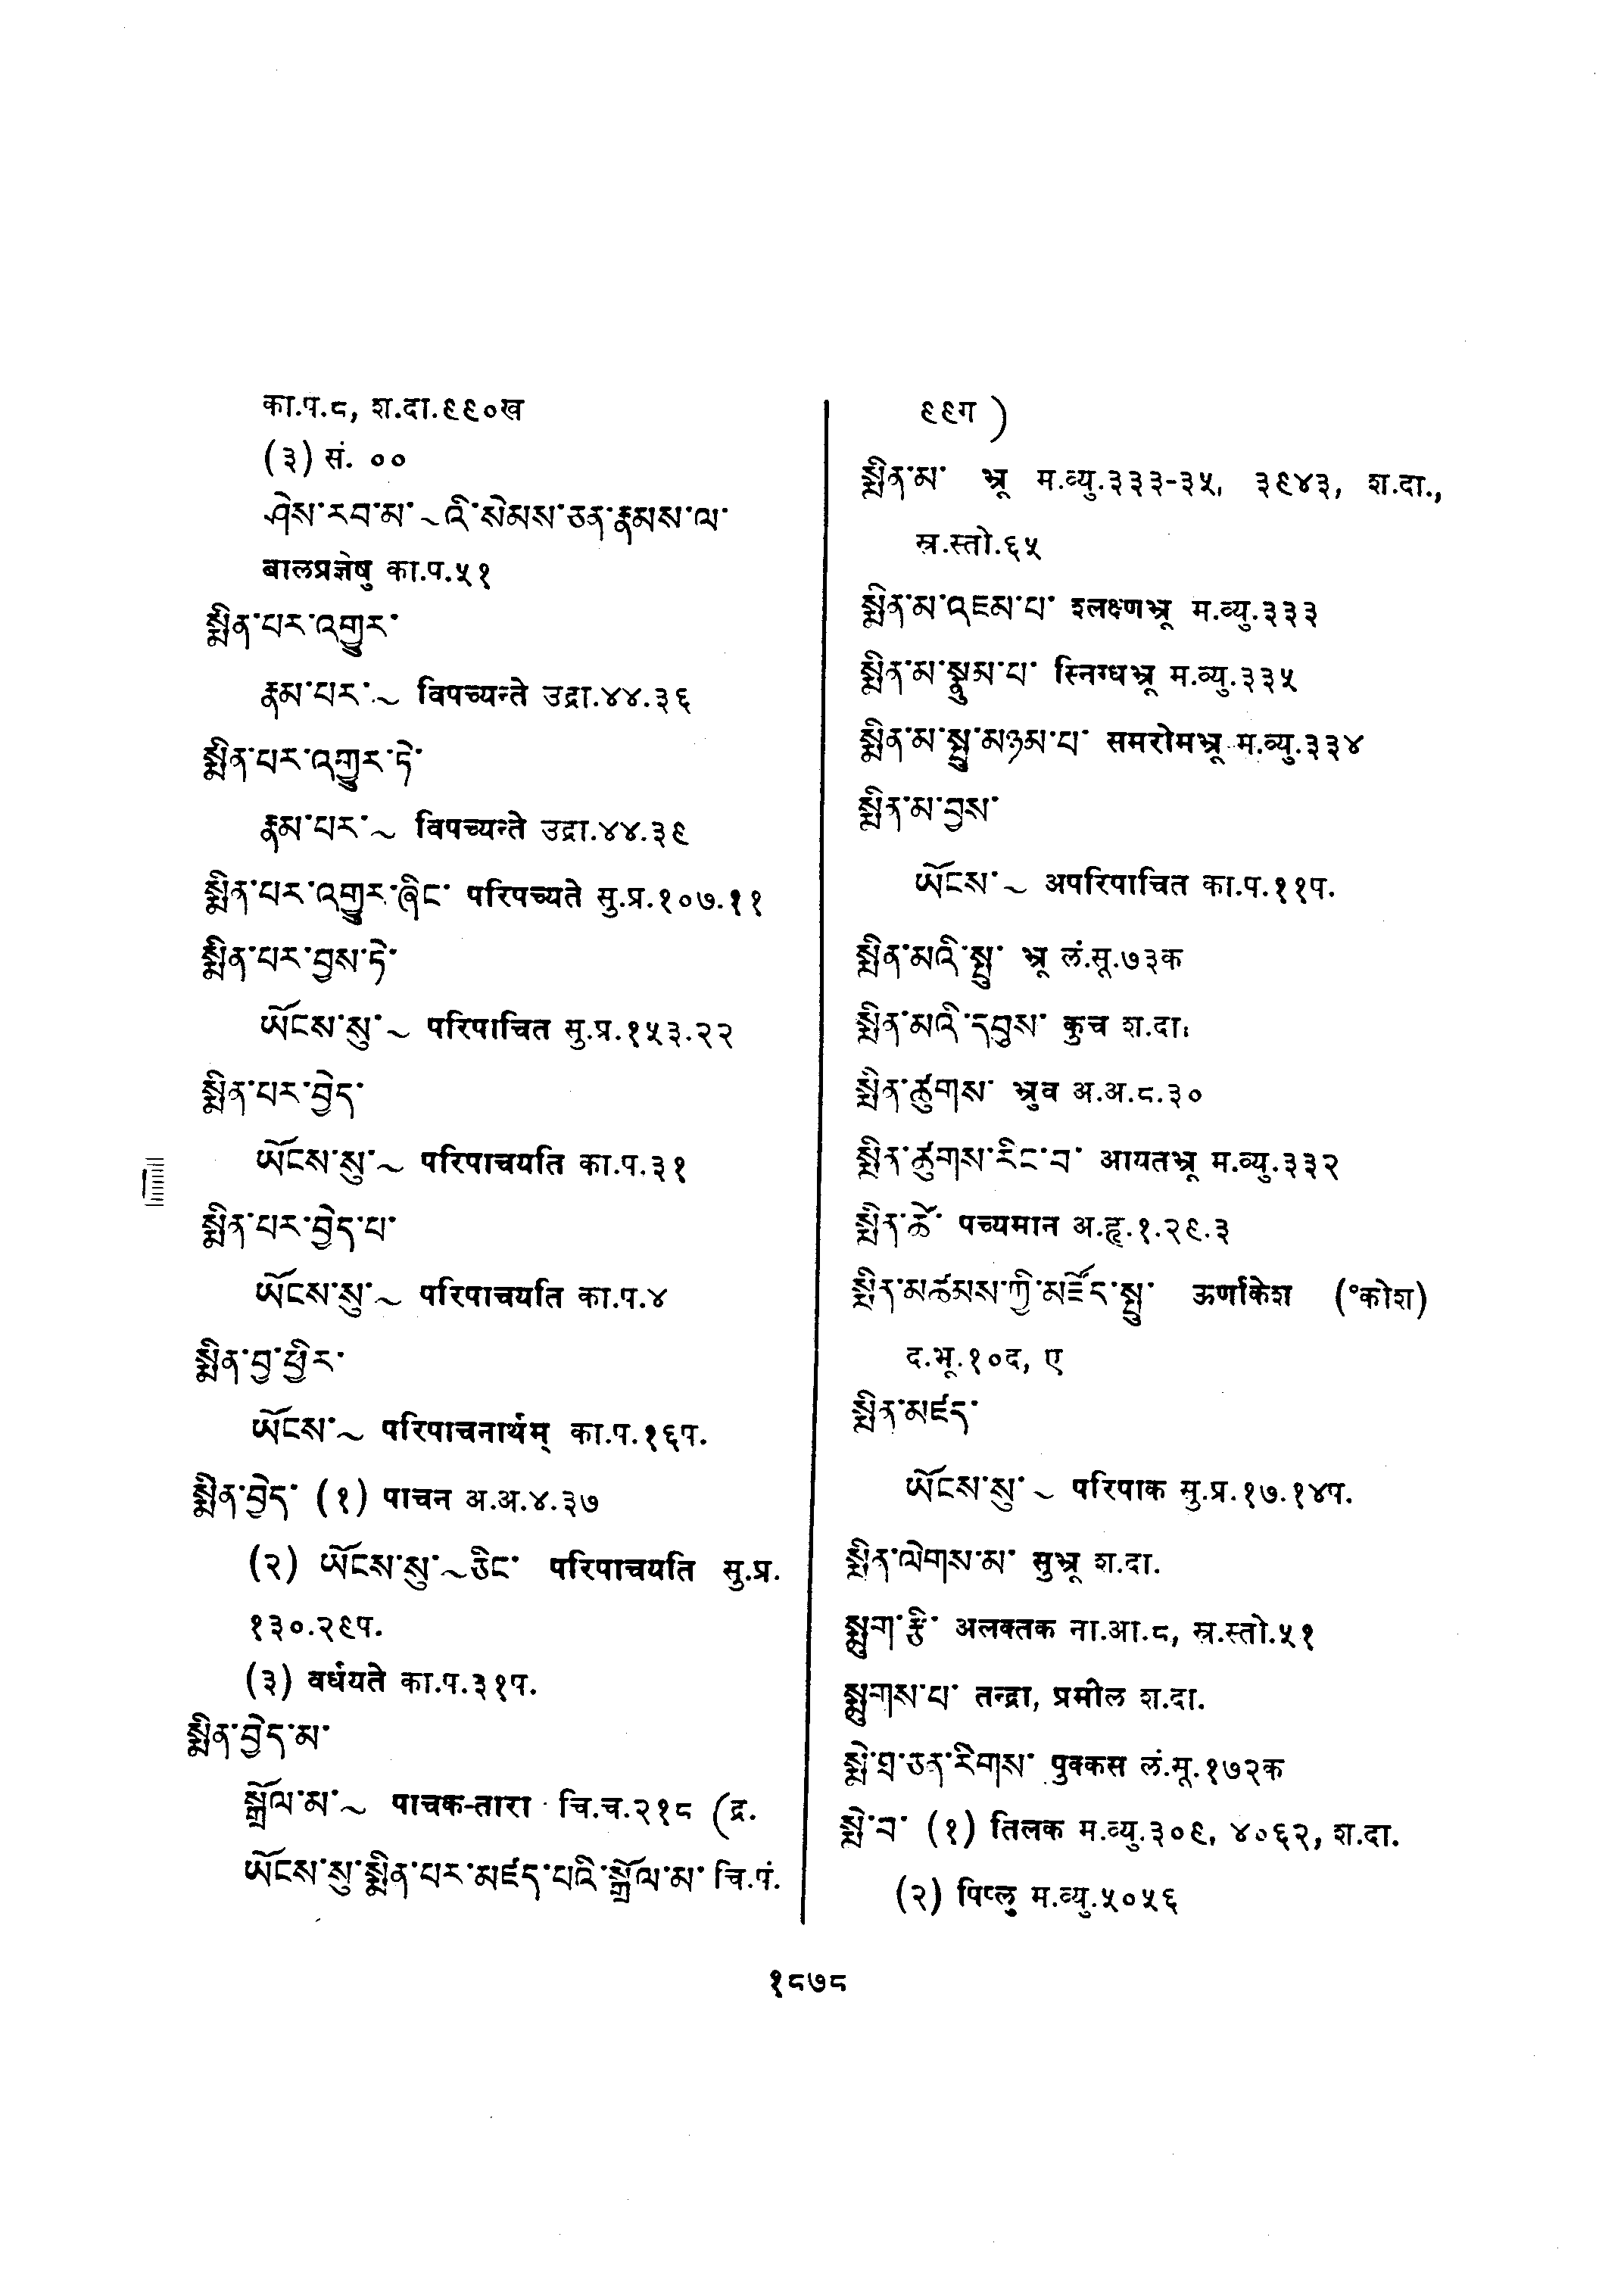 का.प.८, श.दा.९९०ख
(३) सं. ००
ཤེས་རབ་མ་~འི་སེམས་ཅན་རྣམས་ལ་
बालप्रज्ञेषु का.प.५१
སྨིན་པར་འགྱུར་
རྣམ་པར་~ विपच्यन्ते उद्रा.४४.३६
སྨིན་པར་འགྱུར་ཏེ་
རྣམ་པར་~ विपच्यन्ते उद्रा.४४.३९
སྨིན་པར་འགྱུར་ཞིང་ परिपच्यते सु.प्र.१०७.११
སྨིན་པར་བྱས་ཏེ་
ཡོངས་སུ་~ परिपाचित सु.प्र.१५३.२२
སྨིན་པར་བྱེད་
ཡོངས་སུ་~ परिपाचयति का.प.३१
སྨིན་པར་བྱེད་པ་
ཡོངས་སུ་~ परिपाचयति का.प.४
སྨིན་བྱ་ཕྱིར་
ཡོངས་~ परिपाचनार्थम् का.प.१६प.
སྨིན་བྱེད་ (१) पाचन अ.अ.४.३७
(२) ཡོངས་སུ་~ཅིང་ परिपाचयति सु.प्र.
१३०.२९प.
(३) वर्धयते का.प.३१प.
སྨིན་བྱེད་མ་
སྒྲོལ་མ་~ पाचक-तारा चि.च.२१८ (द्र.
ཡོངས་སུ་སྨིན་པར་མཛད་པའི་སྒྲོལ་མ་ चि.पं.
९९ग )
སྨིན་མ་ भ्रू म.व्यु.३३३-३५, ३९४३, श.दा.,
स्र.स्तो.६५
སྨིན་མ་འཇམ་པ་ श्लक्ष्णभ्रू म.व्यु.३३३
སྨིན་མ་སྣུམ་པ་ स्निग्धभ्रू म.व्यु.३३५
སྨིན་མ་སྤུ་མཉམ་པ་ समरोमभ्रू म.व्यु.३३४
སྨིན་མ་བྱས་
ཡོངས་~ अपरिपाचित का.प.११प.
སྨིན་མའི་སྤུ་ भ्रू लं.सू.७३क
སྨིན་མའི་དབུས་ कुच श.दा.
སྨིན་ཚུགས་ भ्रुव अ.अ.८.३०
སྨིན་ཚུགས་རིང་བ་ आयतभ्रू म.व्यु.३३२
སྨིན་ཚེ་ पच्यमान अ.हृ.१.२९.३
སྨིན་མཚམས་ཀྱི་མཛོད་སྤུ་ ऊर्णाकेश (°कोश)
द.भू.१०द, ए
སྨིན་མཛད་
ཡོངས་སུ་~ परिपाक सु.प्र.१७.१४प.
སྨིན་ལེགས་མ་ सुभ्रू श.दा.
སྨུག་རྩི་ अलक्तक ना.आ.८, स्र.स्तो.५१
སྨུགས་པ་ तन्द्रा, प्रमील श.दा.
སྨེ་ཤ་ཅན་རིགས་ पुक्कस लं.सू.१७२क
སྨེ་བ་ (१) तिलक म.व्यु.३०९, ४०६२, श.दा.
(२) पिप्लु म.व्यु.५०५६
१८७८